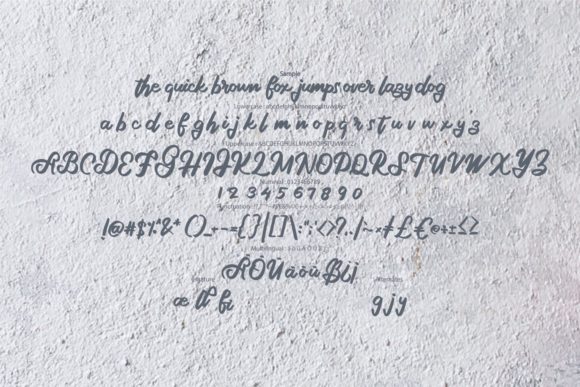 Sample
the quick brown fox jumps over lazy dog
Lowercase : abcdefghijklmnopqrstuvwxyz
a b c d e f g h i j k l m n o p q r s t u v w x y z
Uppercase : ABCDEFGHIJKLMNOPQRSTUVWXYZ
ABCDEFGHIJKLMNOPQRSTUVWXYZ
Numeral : 0123456789
1 2 3 4 5 6 7 8 9 0
Punctuation
!@#$%^&*()_+-={}|[]\:";'<>?,./
Multilingual
ÄÖÜäöü
Ligature
Alternates
æ
g j y